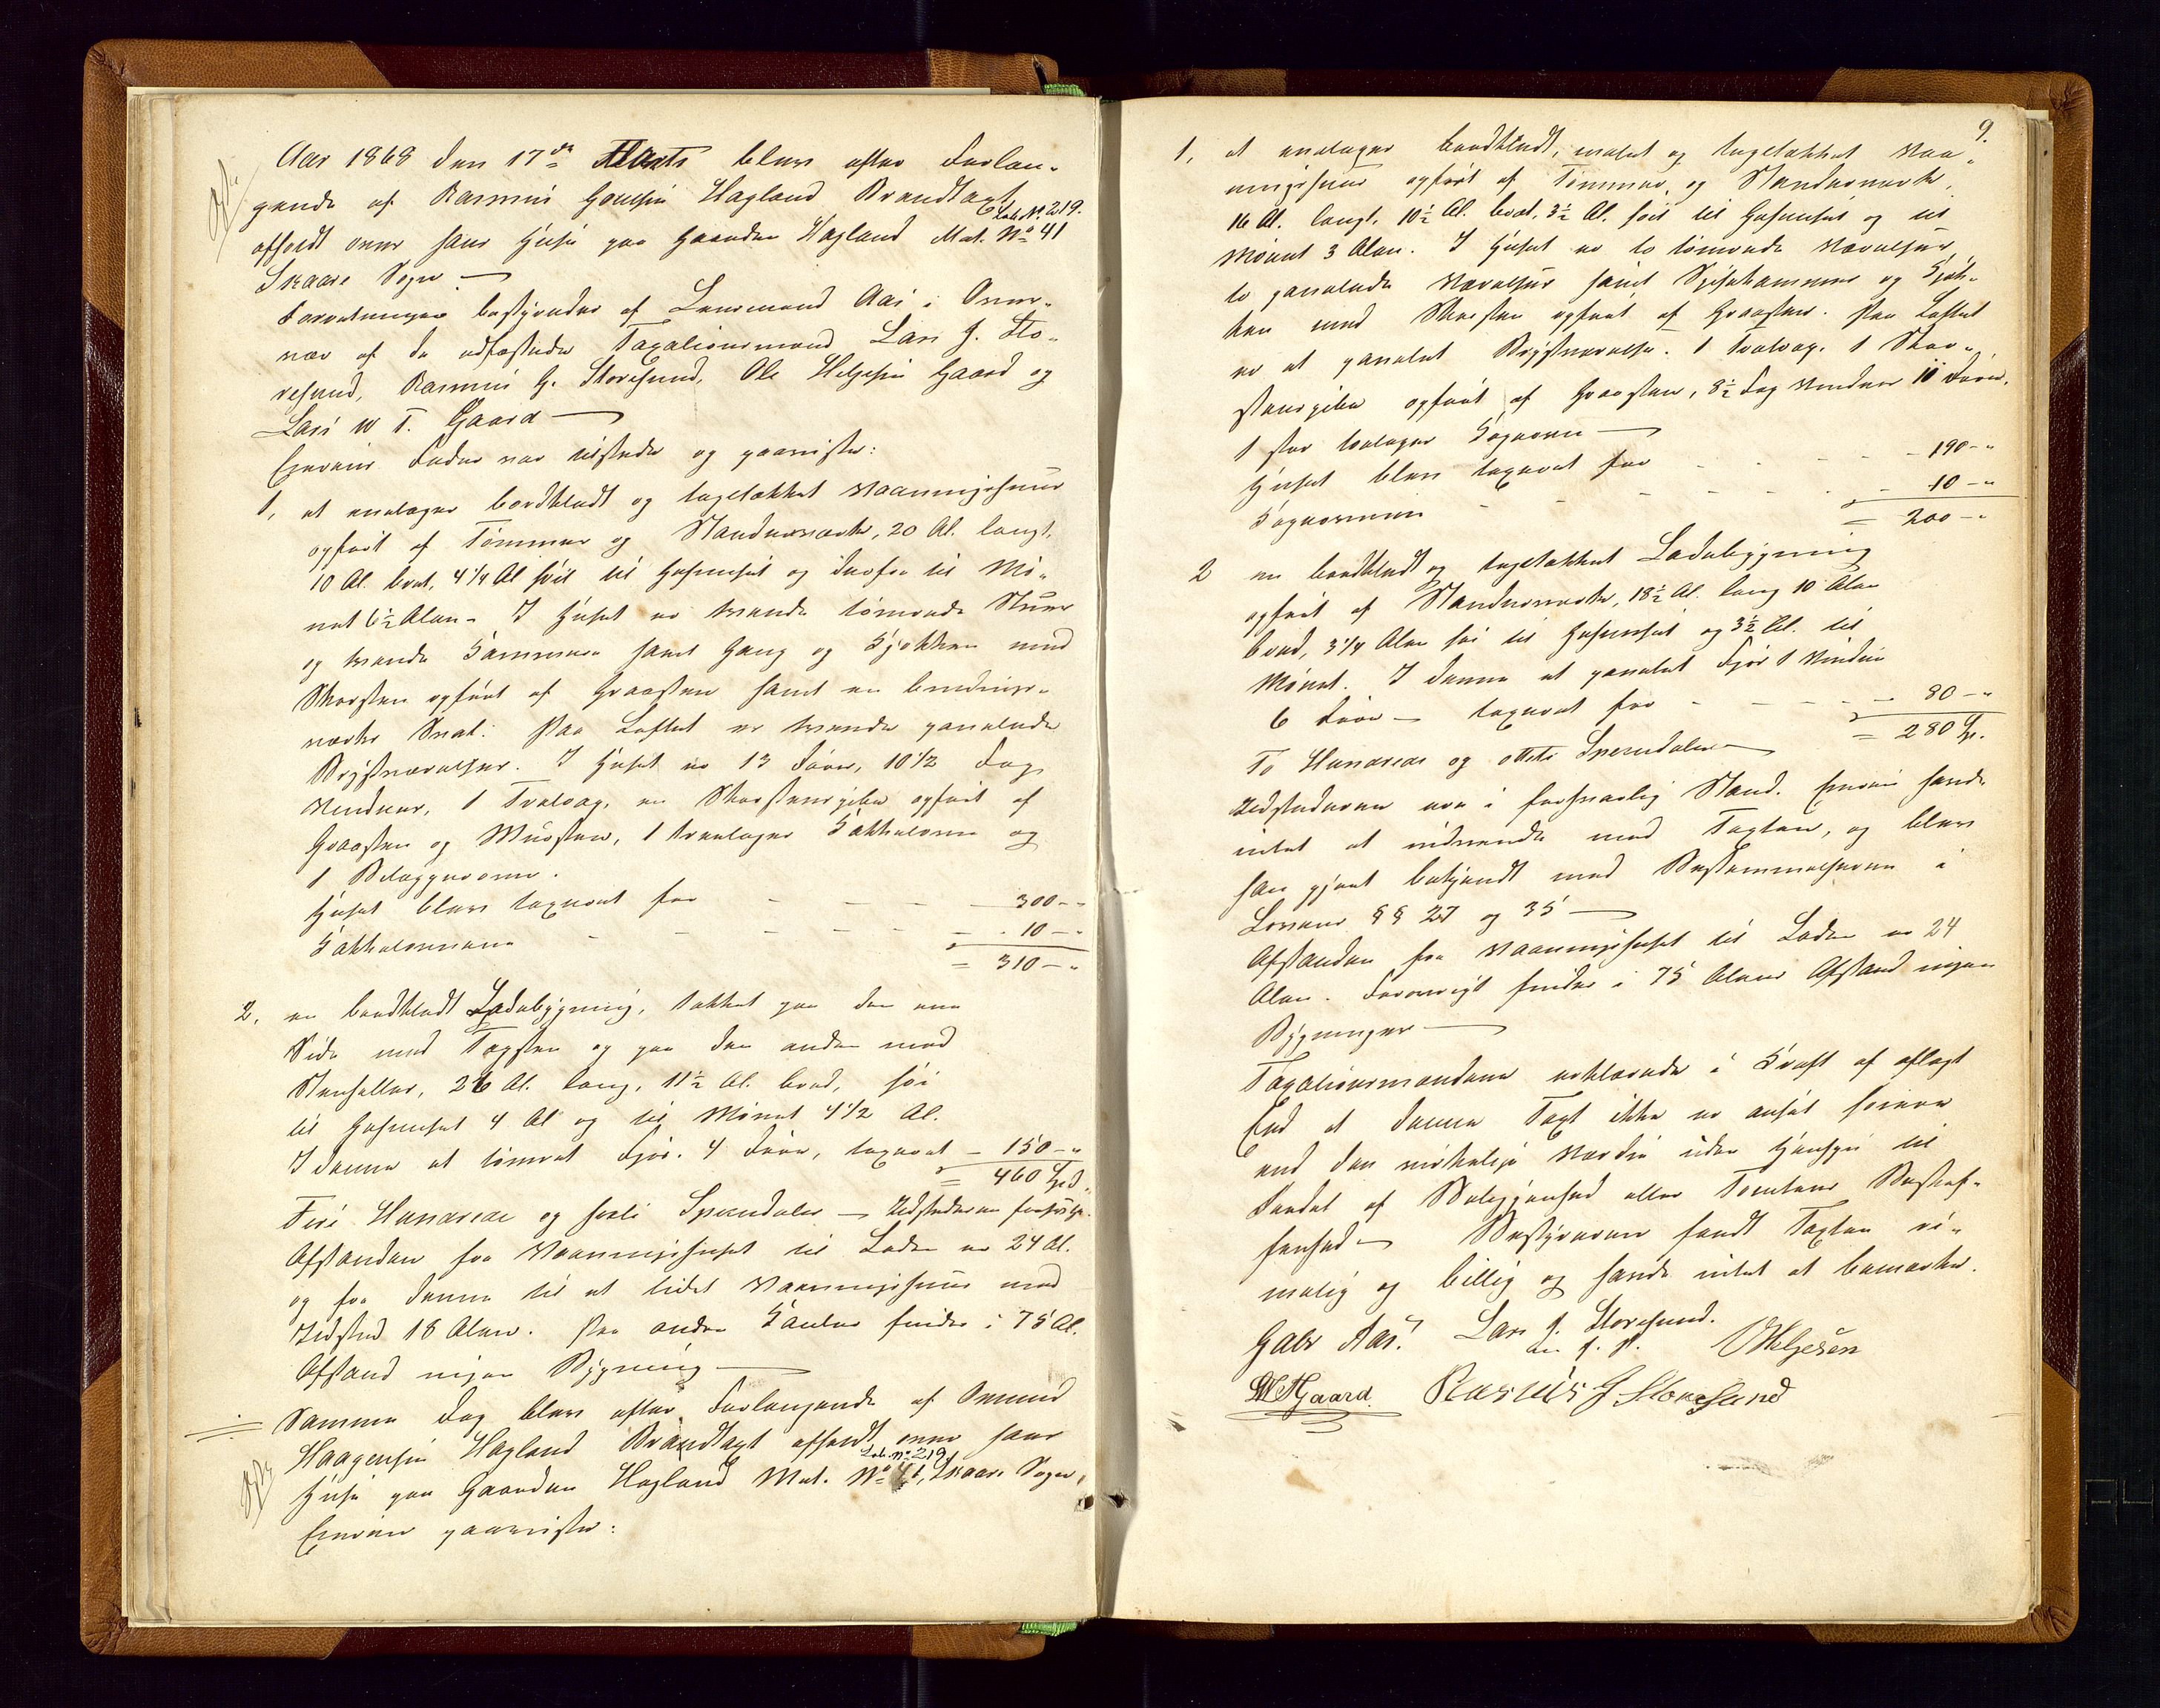 Aar 1868 den 17de Marts blev efter Forlan-
gende af Rasmus Goutsen Hagland Brandtaxt
Løb. No 219.
afholdt over hans Huse paa Gaarden Hagland Mat. No 41
Skaare Sogn —
Forretningen bestyredes af Lensmand Aas i Over-
vær af de udfæstede Taxationsmænd Lars J. Sto-
resund, Rasmus G. Storesund, Ole Helgesen Gaard og
Lars W T. Gaard —
Eierens Fader var tilstede og paaviste:
1, et enetages bordklædt og tagetækket Vaaningshuus
opført af Tømmer og Standerværk, 20 Al. langt,
10 Al. bredt, 4 1/4 Al høit til Gesimset og derfra til Mø-
net 6½ Alen - I Huset er tvende tømrede Stuer
og tvende Kammere samt Gang og Kjøkken med
Skorsten opført af Graasten samt en bindings-
værks Sval. Paa Loftet er tvende panelede
Brystværelser. I Huset er 13 Døre, 10 1/2 Fag
Vinduer, 1 Trætrap, en Skorstenspibe opført af
Graasten og Mursten, 1 treetages Kakkelovn og
1 Bilæggerovn.
Huset blev taxeret for - - - - 300 - "
Kakkelovnene - - - - - 10 - "
= 310 - "
2, en bordklædt Ladebygning, tækket paa den ene
Side med Tagsten og paa den anden med
Stenheller, 26 Al. lang, 11½ Al. bred, høi
til Gesimset 4 Al og til Mønet 4 1/2 Al.
I denne et tømret Fjøs. 4 Døre, taxeret - 150 - "
= 460 Spd.
Fire Hundrede og sexti Speciedaler — Ildstederne forsvarl.
Afstanden fra Vaaningshuset til Laden er 24 Al.
og fra denne til et lidet Vaaningshuus med
Ildsted 18 Alen. Paa andre Kanter findes i 75 Al.
Afstand ingen Bygning —
Samme Dag blev efter Forlangende af Omund
Haagensen Hagland Brandtaxt afholdt over hans
Løb. No 219
Huse paa Gaarden Hagland Mat. No 41, Skaare Sogn,
Eieren paaviste:
9.
1, et enetages bordklædt, malet og tagetækket Vaa-
ningshuus opført af Tømmer og Standerværk,
16 Al. langt, 10½ Al. bred, 3½ Al. høit til Gesimset og til
Mønet 3 Alen. I Huset er to tømrede Værelser,
to panelede Værelser samt Spisekammer og Kjøk-
ken med Skorsten opført af Graasten. Paa Loftet
er et panelet Brystværelse. 1 Trætrap. 1 Skor-
stenspibe opført af Graasten, 8½ Fag Vinduer 10 Døre,
1 stor toetages Kogeovn —
Huset blev taxeret for - - - - 190 - "
Kogeovnen - - - - - 10 - "
= 200 - "
2 en bordklædt og tagetækket Ladebygning
opført af Standerværk, 18½ Al. lang 10 Alen
bred, 3 1/4 Alen høi til Gesimset og 3½ Al. til
Mønet. I denne et panelet Fjøs 1 Vindue
6 Døre — taxeret for - - - - 80 - "
= 280 Sp.
To Hundrede og otteti Speciedaler —
Ildstederne ere i forsvarlig Stand. Eieren havde
intet at indvende mod Taxten, og blev
han gjort bekjendt med Bestemmelserne i
Lovens §§ 27 og 35 —
Afstanden fra Vaaningshuset til Laden er 24
Alen. Forøvrigt findes i 75 Alens Afstand ingen
Bygninger —
Taxationsmændene erklærede i Kraft af aflagt
Eed at denne Taxt ikke er ansat høiere
end den virkelige Værdi uden Hensyn til
Stedet af Beliggenhed eller Tomtens Beskaf-
fenhed — Bestyreren fandt Taxten ri-
melig og billig og havde intet at bemærke.
Gabr Aas. Lars J. Storesund.
m. f. P. O Helgesen
LWTGaard. Rasmus G Storesund